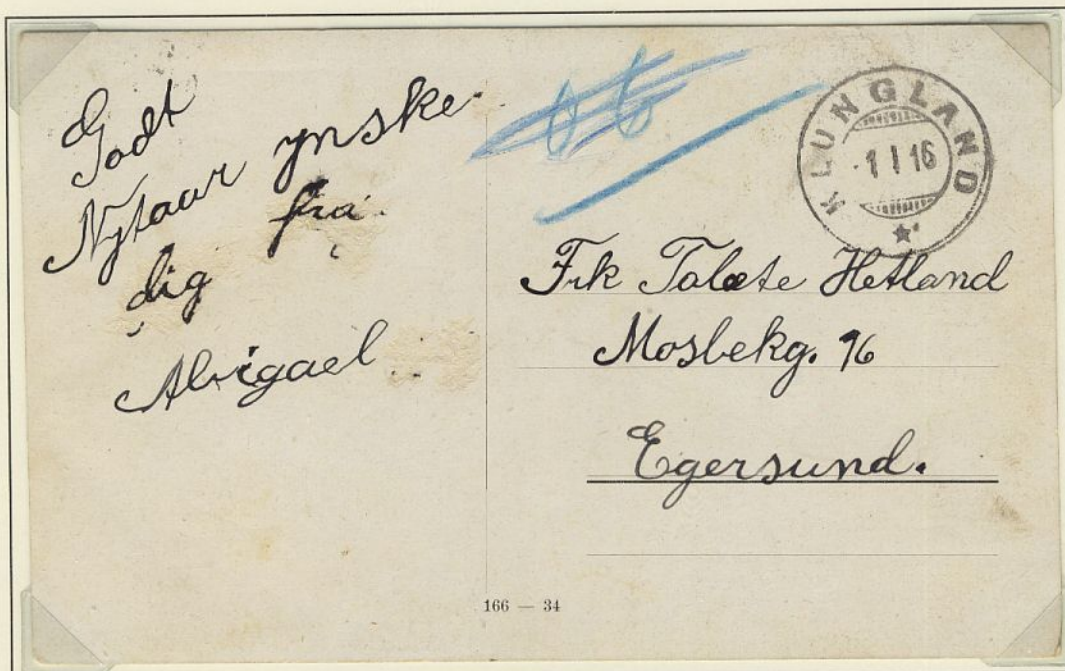 Godt
Nytaar ynske
fra
dig
Abigael
KLUNGLAND
-1 I 16
Frk Talete Hetland
Mosbekg. 96
Egersund.
166 — 34